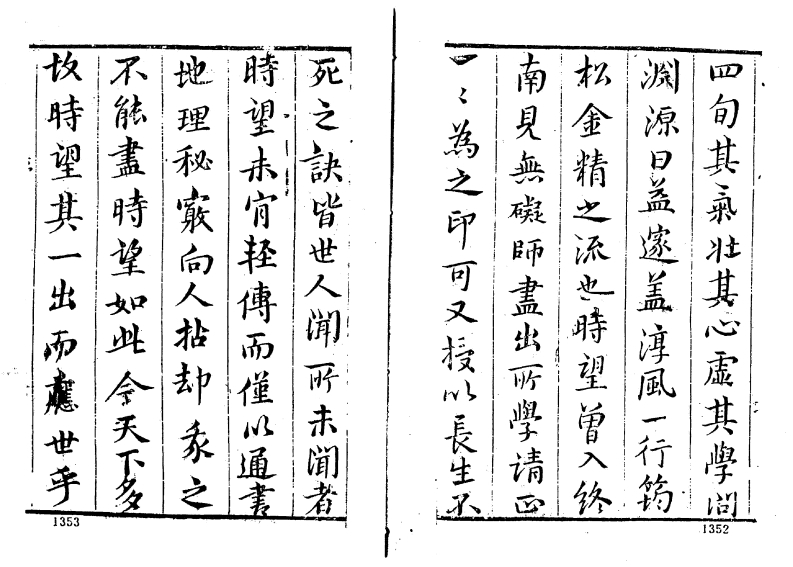 四旬其氣壯其心虛其學問
淵源日益邃盖淳風一行筠
松金精之流也時望曽入終
南見無礙師盡出所學請正
一〻為之印可又授以長生不
死之訣皆世人聞所未聞者
時望未肯輕傳而僅以通書
地理秘竅向人拈却之
不能盡時望如此今天下多
故時望其一出而應世乎
1353
1352